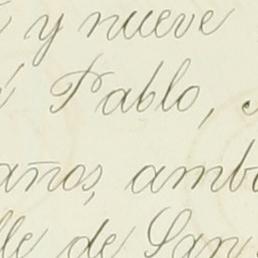 y nueve
Pablo,
años, ambo
lle de San